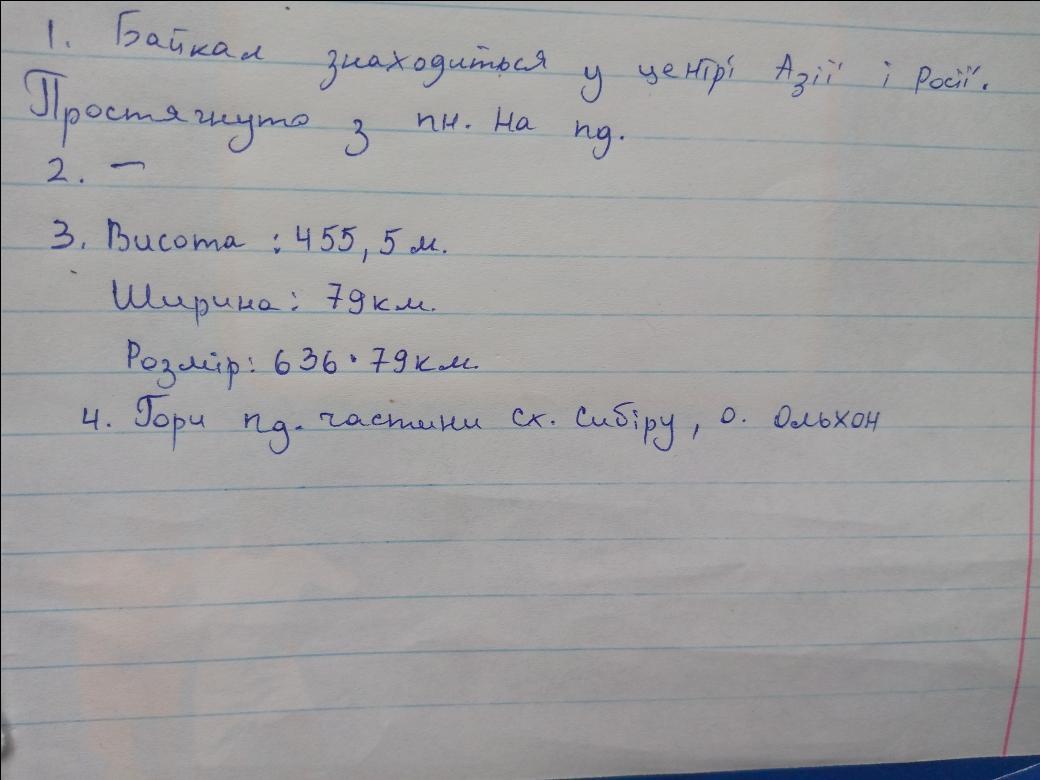 1. Байкал знаходиться у центрі Азії і Росії.
Простягнуто з пн. на пд.
2. —
3. Висота : 455,5 м.
Ширина : 79 км.
Розмір : 636 · 79 км.
4. Гори пд. частини сх. Сибіру, о. Ольхон